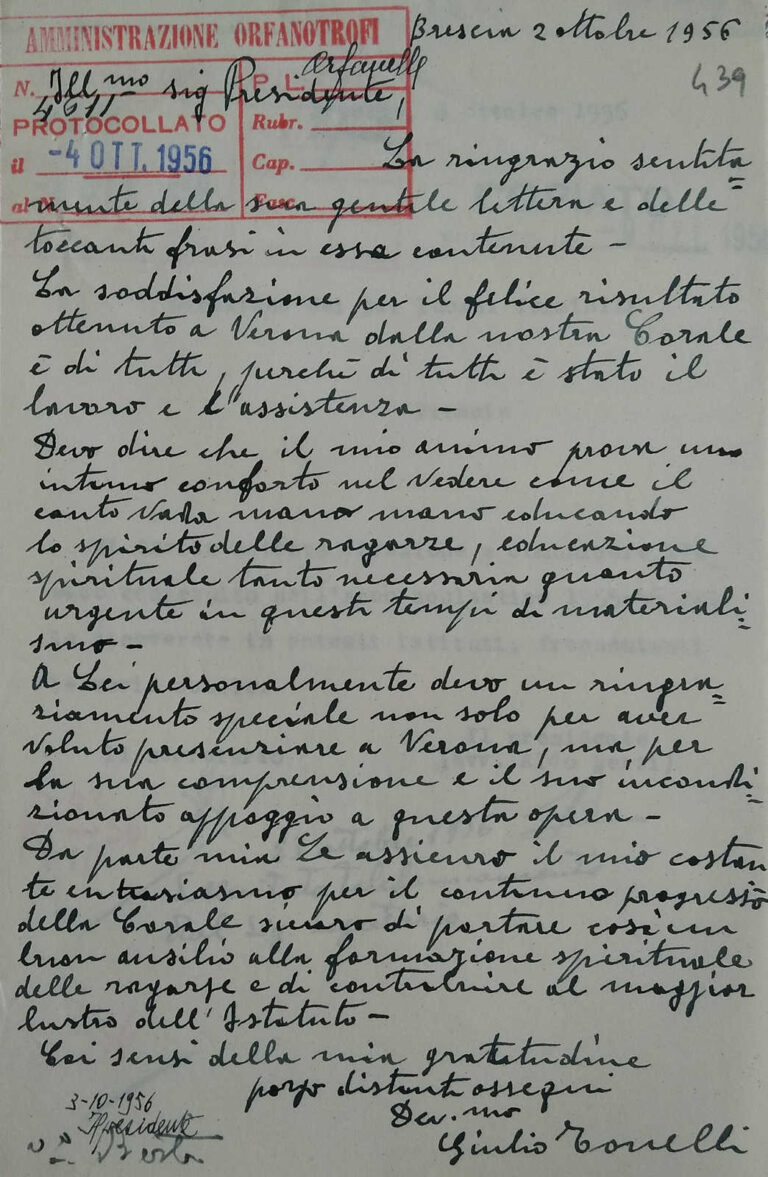 Brescia 2 ottobre 1956
439
AMMINISTRAZIONE ORFANOTROFI
N. 4611
P. L. Orfanelle
PROTOCOLLATO
il -4 OTT. 1956
al N.
Rubr.
Cap.
Fasc.
Ill.mo sig Presidente,
La ringrazio sentita=
mente della sua gentile lettera e delle
toccanti frasi in essa contenute –
La soddisfazione per il felice risultato
ottenuto a Verona dalla nostra Corale
è di tutti, perchè di tutti è stato il
lavoro e l'assistenza –
Devo dire che il mio animo prova un
intimo conforto nel vedere come il
canto vada mano mano educando
lo spirito delle ragazze, educazione
spirituale tanto necessaria quanto
urgente in questi tempi di materiali=
smo –
A Lei personalmente devo un ringra=
ziamento speciale non solo per aver
voluto presenziare a Verona, ma per
la sua comprensione e il suo incondi=
zionato appoggio a questa opera –
Da parte mia Le assicuro il mio costan
te entusiasmo per il continuo progresso
della Corale sicuro di portare così un
buon ausilio alla formazione spirituale
delle ragazze e di contribuire al maggior
lustro dell'Istituto –
Coi sensi della mia gratitudine
porgo distinti ossequi
Dev.mo
Giulio Tonelli
3-10-1956
Il Presidente